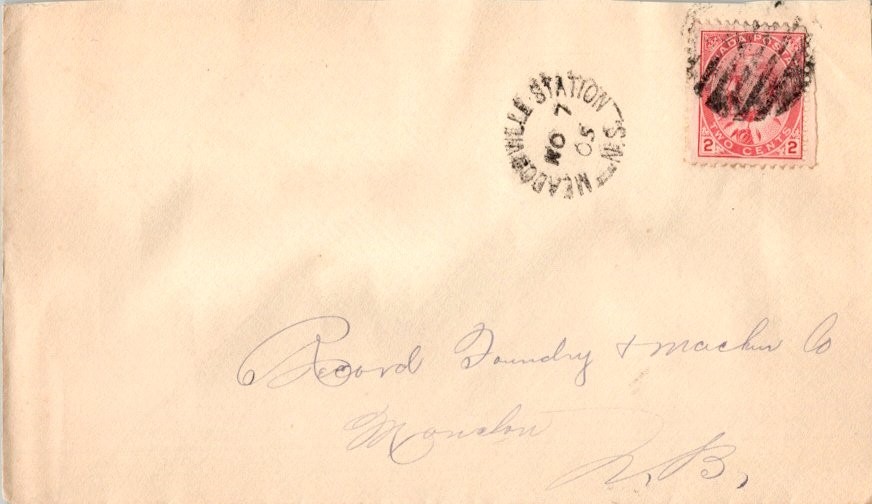 MEADOWVILLE STATION N.S.
NO 7
05
CANADA POSTAGE
2 TWO CENTS 2
Record Foundry & Machin Co
Moncton
N.B.